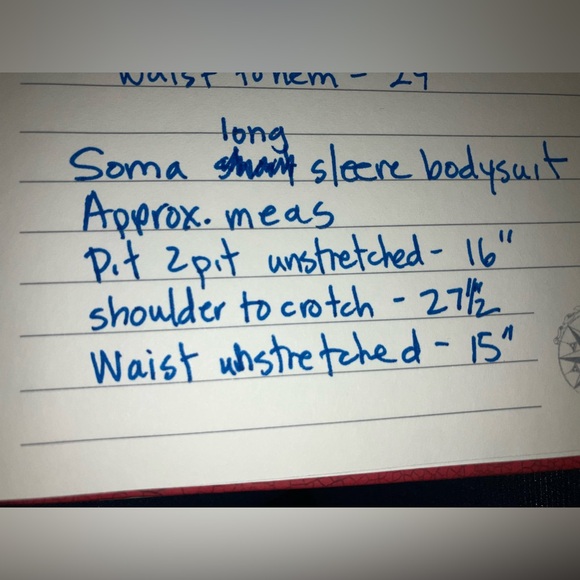 Waist to hem - 24
long
Soma sleeve bodysuit
Approx. meas
Pit 2 pit unstretched - 16"
shoulder to crotch - 27 1/2"
Waist unstretched - 15"